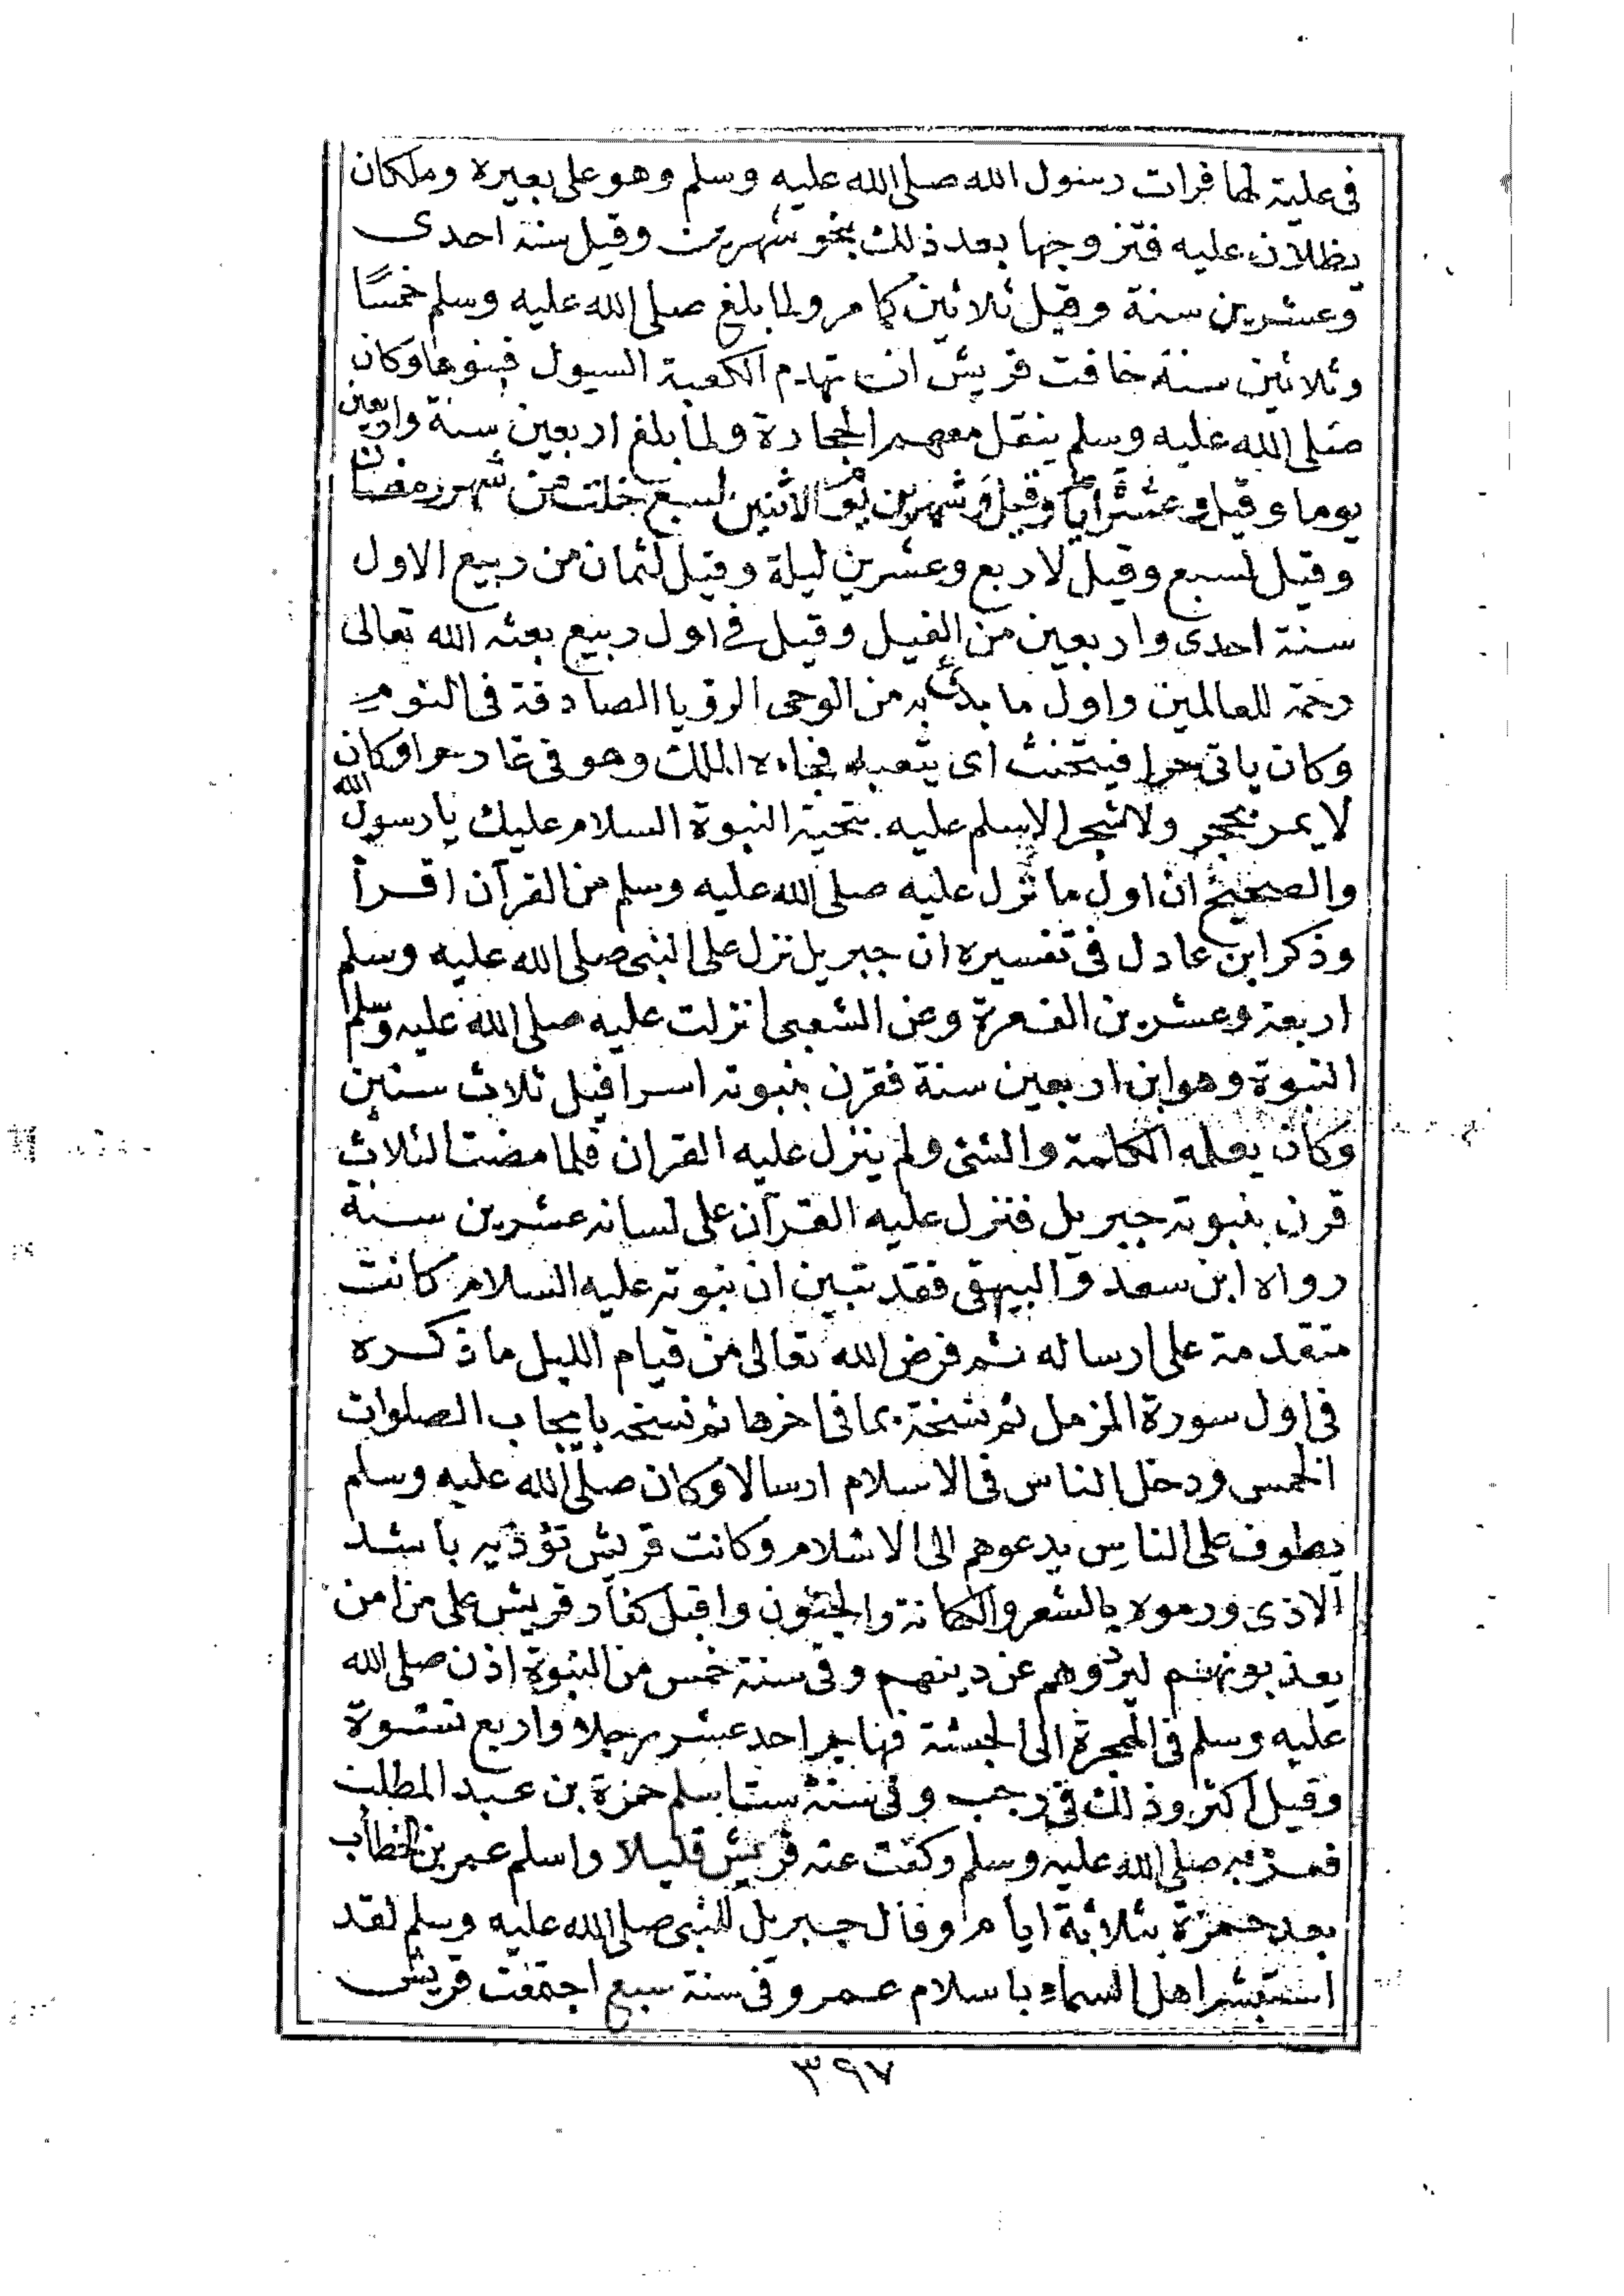 فى علية لها فرات رسول الله صلى الله عليه وسلم وهو على بعيره وملكان
يظلان عليه فتزوجها بعد ذلك بنحو شهرين وقيل سنة احدى
وعشرين سنة وقيل ثلاثين كما مر ولما بلغ صلى الله عليه وسلم خمسًا
وثلاثين سنة خافت قريش ان تهدم الكعبة السيول فبنوها وكان
صلى الله عليه وسلم ينقل معهم الحجارة ولما بلغ اربعين سنة واربعين
يوما وقيل وعشرة ايام وقيل وشهرين يوم الاثنين لسبع خلت من شهر رمضان
وقيل لسبع وقيل لاربع وعشرين ليلة وقيل لثمان من ربيع الاول
سنة احدى واربعين من الفيل وقيل فى اول ربيع بعثه الله تعالى
رحمة للعالمين واول ما بدئ به من الوحى الرؤيا الصادقة فى النوم
وكان ياتى حرا فيتحنث اى يتعبد فجاءه الملك وهو فى غار حرا وكان
لا يمر بحجر ولا شجر الا سلم عليه بتحية النبوة السلام عليك يا رسول الله
والصحيح ان اول ما نزل عليه صلى الله عليه وسلم من القرآن اقرأ
وذكر ابن عادل فى تفسيره ان جبريل نزل على النبى صلى الله عليه وسلم
اربعة وعشرين الف مرة وعن الشعبى انزلت عليه صلى الله عليه وسلم
النبوة وهو ابن اربعين سنة فقرن بنبوته اسرافيل ثلاث سنين
وكان يعلمه الكلمة والشئ ولم ينزل عليه القران فلما مضت الثلاث
قرن بنبوته جبريل فنزل عليه القرآن على لسانه عشرين سنة
رواه ابن سعد والبيهقى فقد تبين ان نبوته عليه السلام كانت
متقدمة على ارساله ثم فرض الله تعالى من قيام الليل ما ذكره
فى اول سورة المزمل ثم نسخة بما فى اخرها ثم نسخه بايجاب الصلوات
الخمس ودخل الناس فى الاسلام ارسالا وكان صلى الله عليه وسلم
يطوف على الناس يدعوهم الى الاسلام وكانت قريش تؤذيه باشد
الاذى ورموه بالشعر والكهانة والجنون واقبل كفار قريش على من امن
يعذبونهم ليردوهم عن دينهم وفى سنة خمس من النبوة اذن صلى الله
عليه وسلم فى الهجرة الى الحبشة فهاجر احد عشر رجلا واربع نسوة
وقيل اكثر وذلك فى رجب وفى سنة ست اسلم حمزة بن عبد المطلب
فعز به صلى الله عليه وسلم وكفت عنه قريش قليلا واسلم عمر بن الخطاب
بعد حمزة بثلاثة ايام وقال جبريل للنبى صلى الله عليه وسلم لقد
استبشر اهل السماء باسلام عمر وفى سنة سبع اجتمعت قريش
٣٩٧